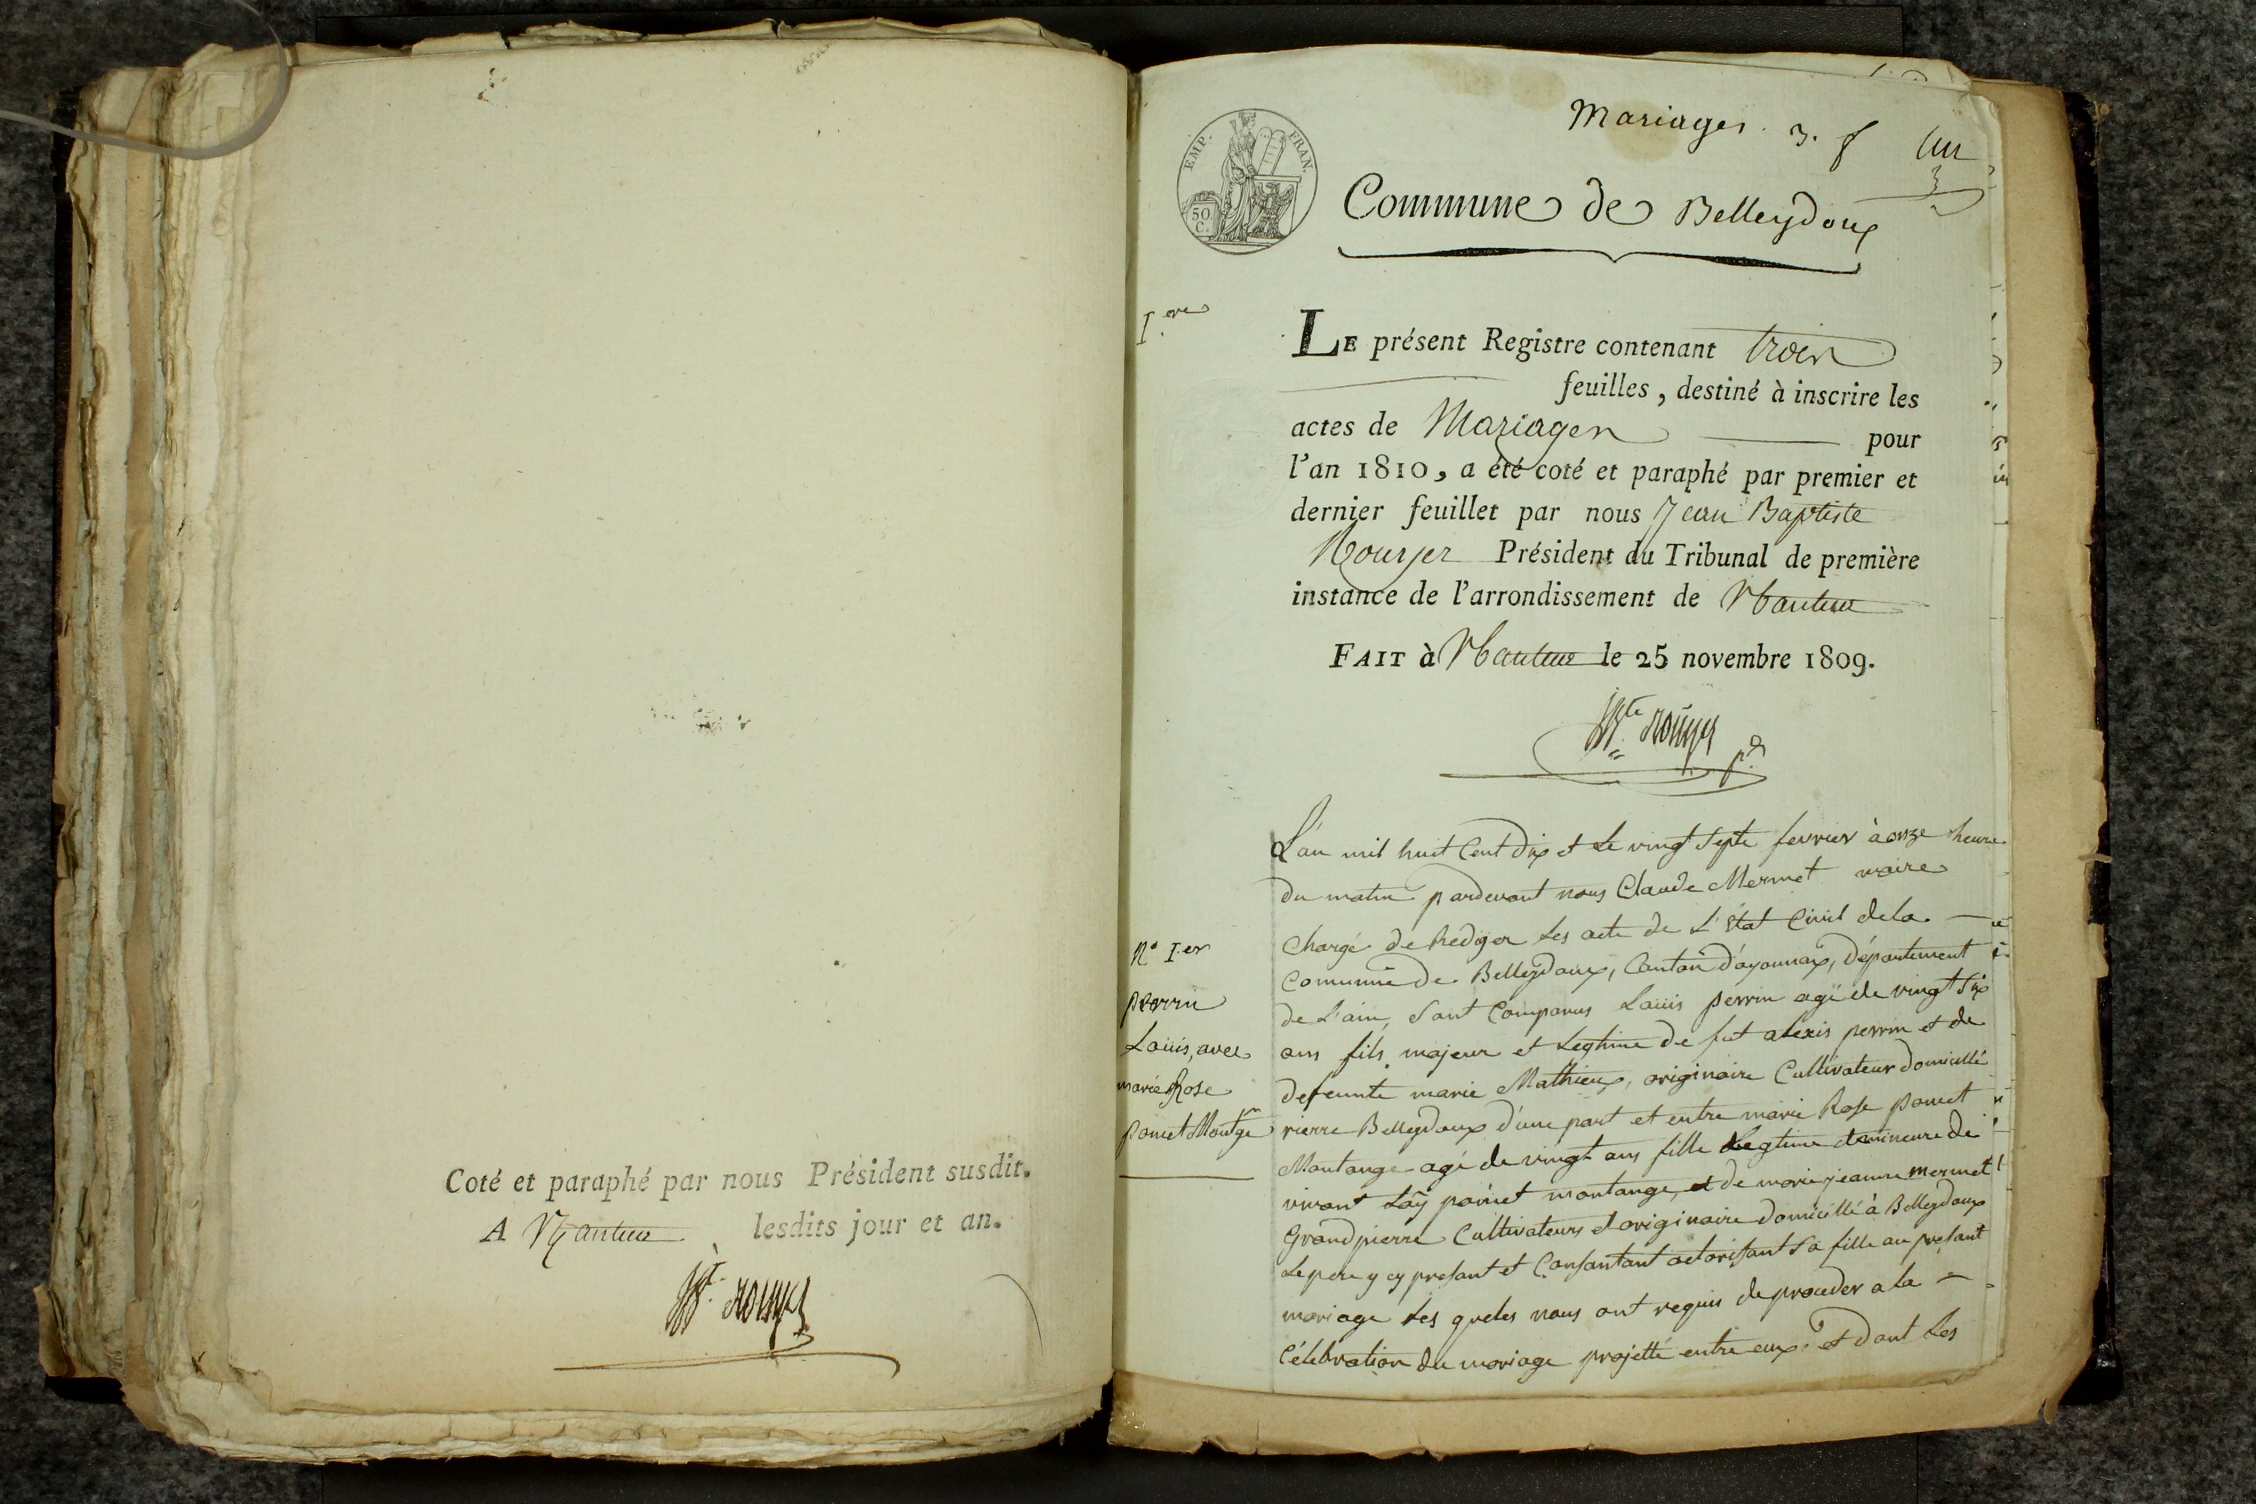 Coté et paraphé par nous Président susdit.
A Nantua lesdits jour et an.
JBte Rouyer
Mariages. 3. f un
EMP. FRAN.
50
C.
Commune de Belleydoux
Iere
LE présent Registre contenant trois
feuilles, destiné à inscrire les
actes de Mariages pour
l'an 1810, a été coté et paraphé par premier et
dernier feuillet par nous Jean Baptiste
Rouyer Président du Tribunal de première
instance de l'arrondissement de Nantua
FAIT à Nantua le 25 novembre 1809.
JBte Rouyer
pt
L'an mil huit Cent Dix et Le vingt Septe fevrier à onze heure
du matin pardevant nous Claude Mermet maire
Chargé de Rediger Les acte de L'État Civil dela
Commune De Belleydoux, Canton d'oyonnax, Département
de L'ain, Sont Comparus Louis perrin agé de vingt Six
ans fils majeur et Legtime de fut alexis perrin et de
defeunte marie Mathieux, originaire Cultivateur domicillé
rierre Belleydoux d'une part et entre marie Rose poncet
Montange agé de vingt ans fille Legtime et mineure de
vivant Laÿ poncet montange, et de marie jeanne mermet
Grandpierre Cultivateurs et originaire domicillé à Belleydoux
Le pere y cy presant et Consantant actorisant Sa fille au presant
mariage Les queles nous ont requis de proceder a la
Célebration du mariage projetté entre eux. et dont Les
No Ier
perrin
Louis, avec
marie Rose
poncet Montge